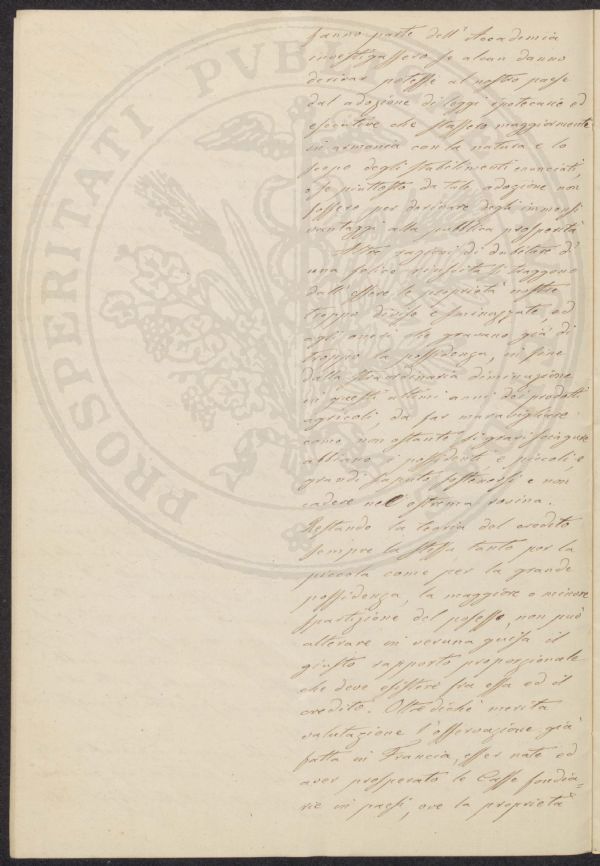 fanno parte dell'Accademia
investigassero se alcun danno
derivar potesse al nostro paese
dal adozione di leggi ipotecarie ed
esecutive che stassero maggiormente
in armonia con la natura e lo
scopo degli stabilimenti enunciati,
o se piuttosto da tale adozione non
fossero per derivare degli immensi
vantaggi alla pubblica prosperità
Altre ragioni di dubitare di
una felice riuscita si traggono
dall'essere le proprietà nostre
troppo divise e sminuzzate, ed
agli oneri che gravano già di
troppo la possidenza, in fine
dalla straordinaria diminuzione
in questi ultimi anni dei prodotti
agricoli, da far maravigliare
come non ostante sì gravi sciagure
abbiano i possidenti e piccoli, e
grandi saputo sostenersi e non
cadere nel estrema rovina.
Restando la teoria del credito
sempre la stessa tanto per la
piccola come per la grande
possidenza, la maggiore o minore
spartizione del possesso, non può
alterare in veruna guisa il
giusto rapporto proporzionale
che deve esistere fra essa ed il
credito. Oltredichè merita
valutazione l'osservazione già
fatta in Francia, esser nate ed
aver prosperato le Casse fondia=
rie in paesi, ove la proprietà
PROSPERITATI PUBLICAE